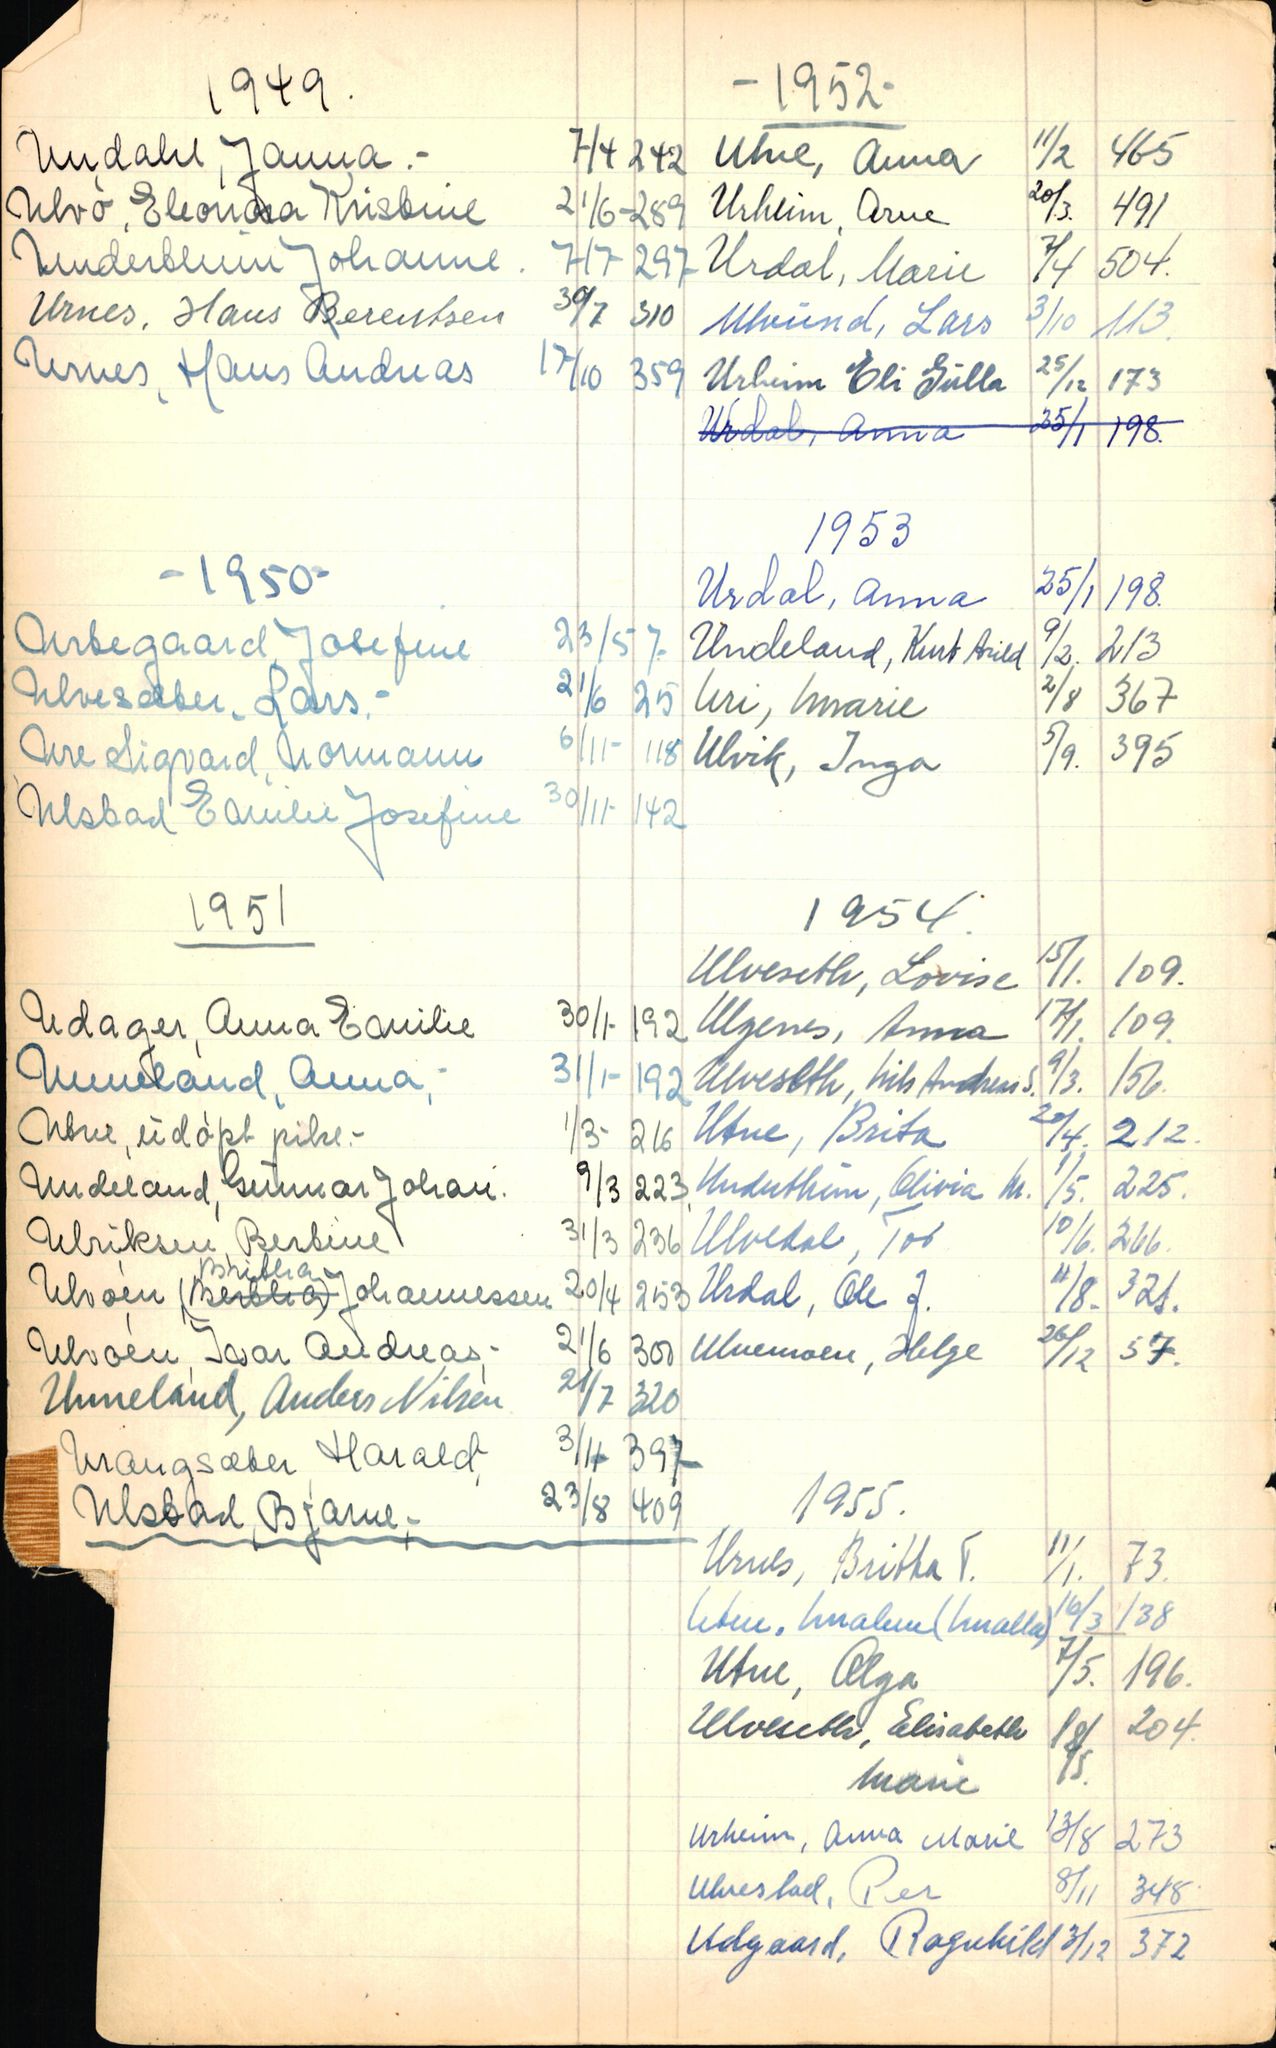 1949.
Undahl, Janna.- 7/4 242
Ulvö, Eleonora Kristine 21/6- 289
Underthun Johanne. 7/7 297
Urnes, Hans Berentsen 30/7 310
Urnes, Hans Andreas 17/10 359
-1950-
Urtegaard, Josefine 23/5 7.
Ulvesæter, Lars.- 21/6 25
Ure Sigvard, Normann 6/11- 118
Ulstad Emilie Josefine 30/11- 142
1951
Udager, Anna Emilie 30/1- 192
Unneland, Anna,- 31/1- 192
Utne, udöpt pike.- 1/3- 216
Undeland, Gunnar Johan. 9/3 223
Ulriksen, Bertine 31/3 236
Britha
Ulvöen (Bertha) Johannessen 20/4 253
Ulvöen, Ivar Andreas,- 21/6 300
Unneland, Anders Nilsen 21/7 320
Urangsæter Harald, 3/11- 397
Ulstad, Bjarne,- 23/8 409
-1952-
Utne, Anna 11/2 465
Urheim, Arne 20/3. 491
Urdal, Marie 7/4 504.
Ulvund, Lars 3/10 113.
Urheim Eli Gulla 25/12 173
Urdal, Anna 25/1 198.
1953
Urdal, Anna 25/1 198.
Undeland, Kurt Arild 9/2. 213
Uri, Marie 2/8 367
Ulvik, Inga 5/9. 395
1954.
Ulveseth, Lovise 15/1. 109.
Ulgenes, Anna 17/1. 109.
Ulveseth, Nils Andreas S. 9/3. 156.
Utne, Brita 20/4. 212.
Underthun, Olivia M. 1/5. 225.
Ulvedal, Tor 10/6. 266.
Urdal, Ole J. 11/8. 321.
Ulvemoen, Helge 26/12 57.
1955.
Urnes, Britha T. 11/1. 73.
Utne, Malene (Malla) 16/3 138
Utne, Olga 7/5. 196.
Ulveseth, Elisabeth 18/5. 204.
Marie
Urheim, Anna Marie 13/8 273
Ulvestad, Per 8/11 348.
Udgaard, Ragnhild 3/12 372